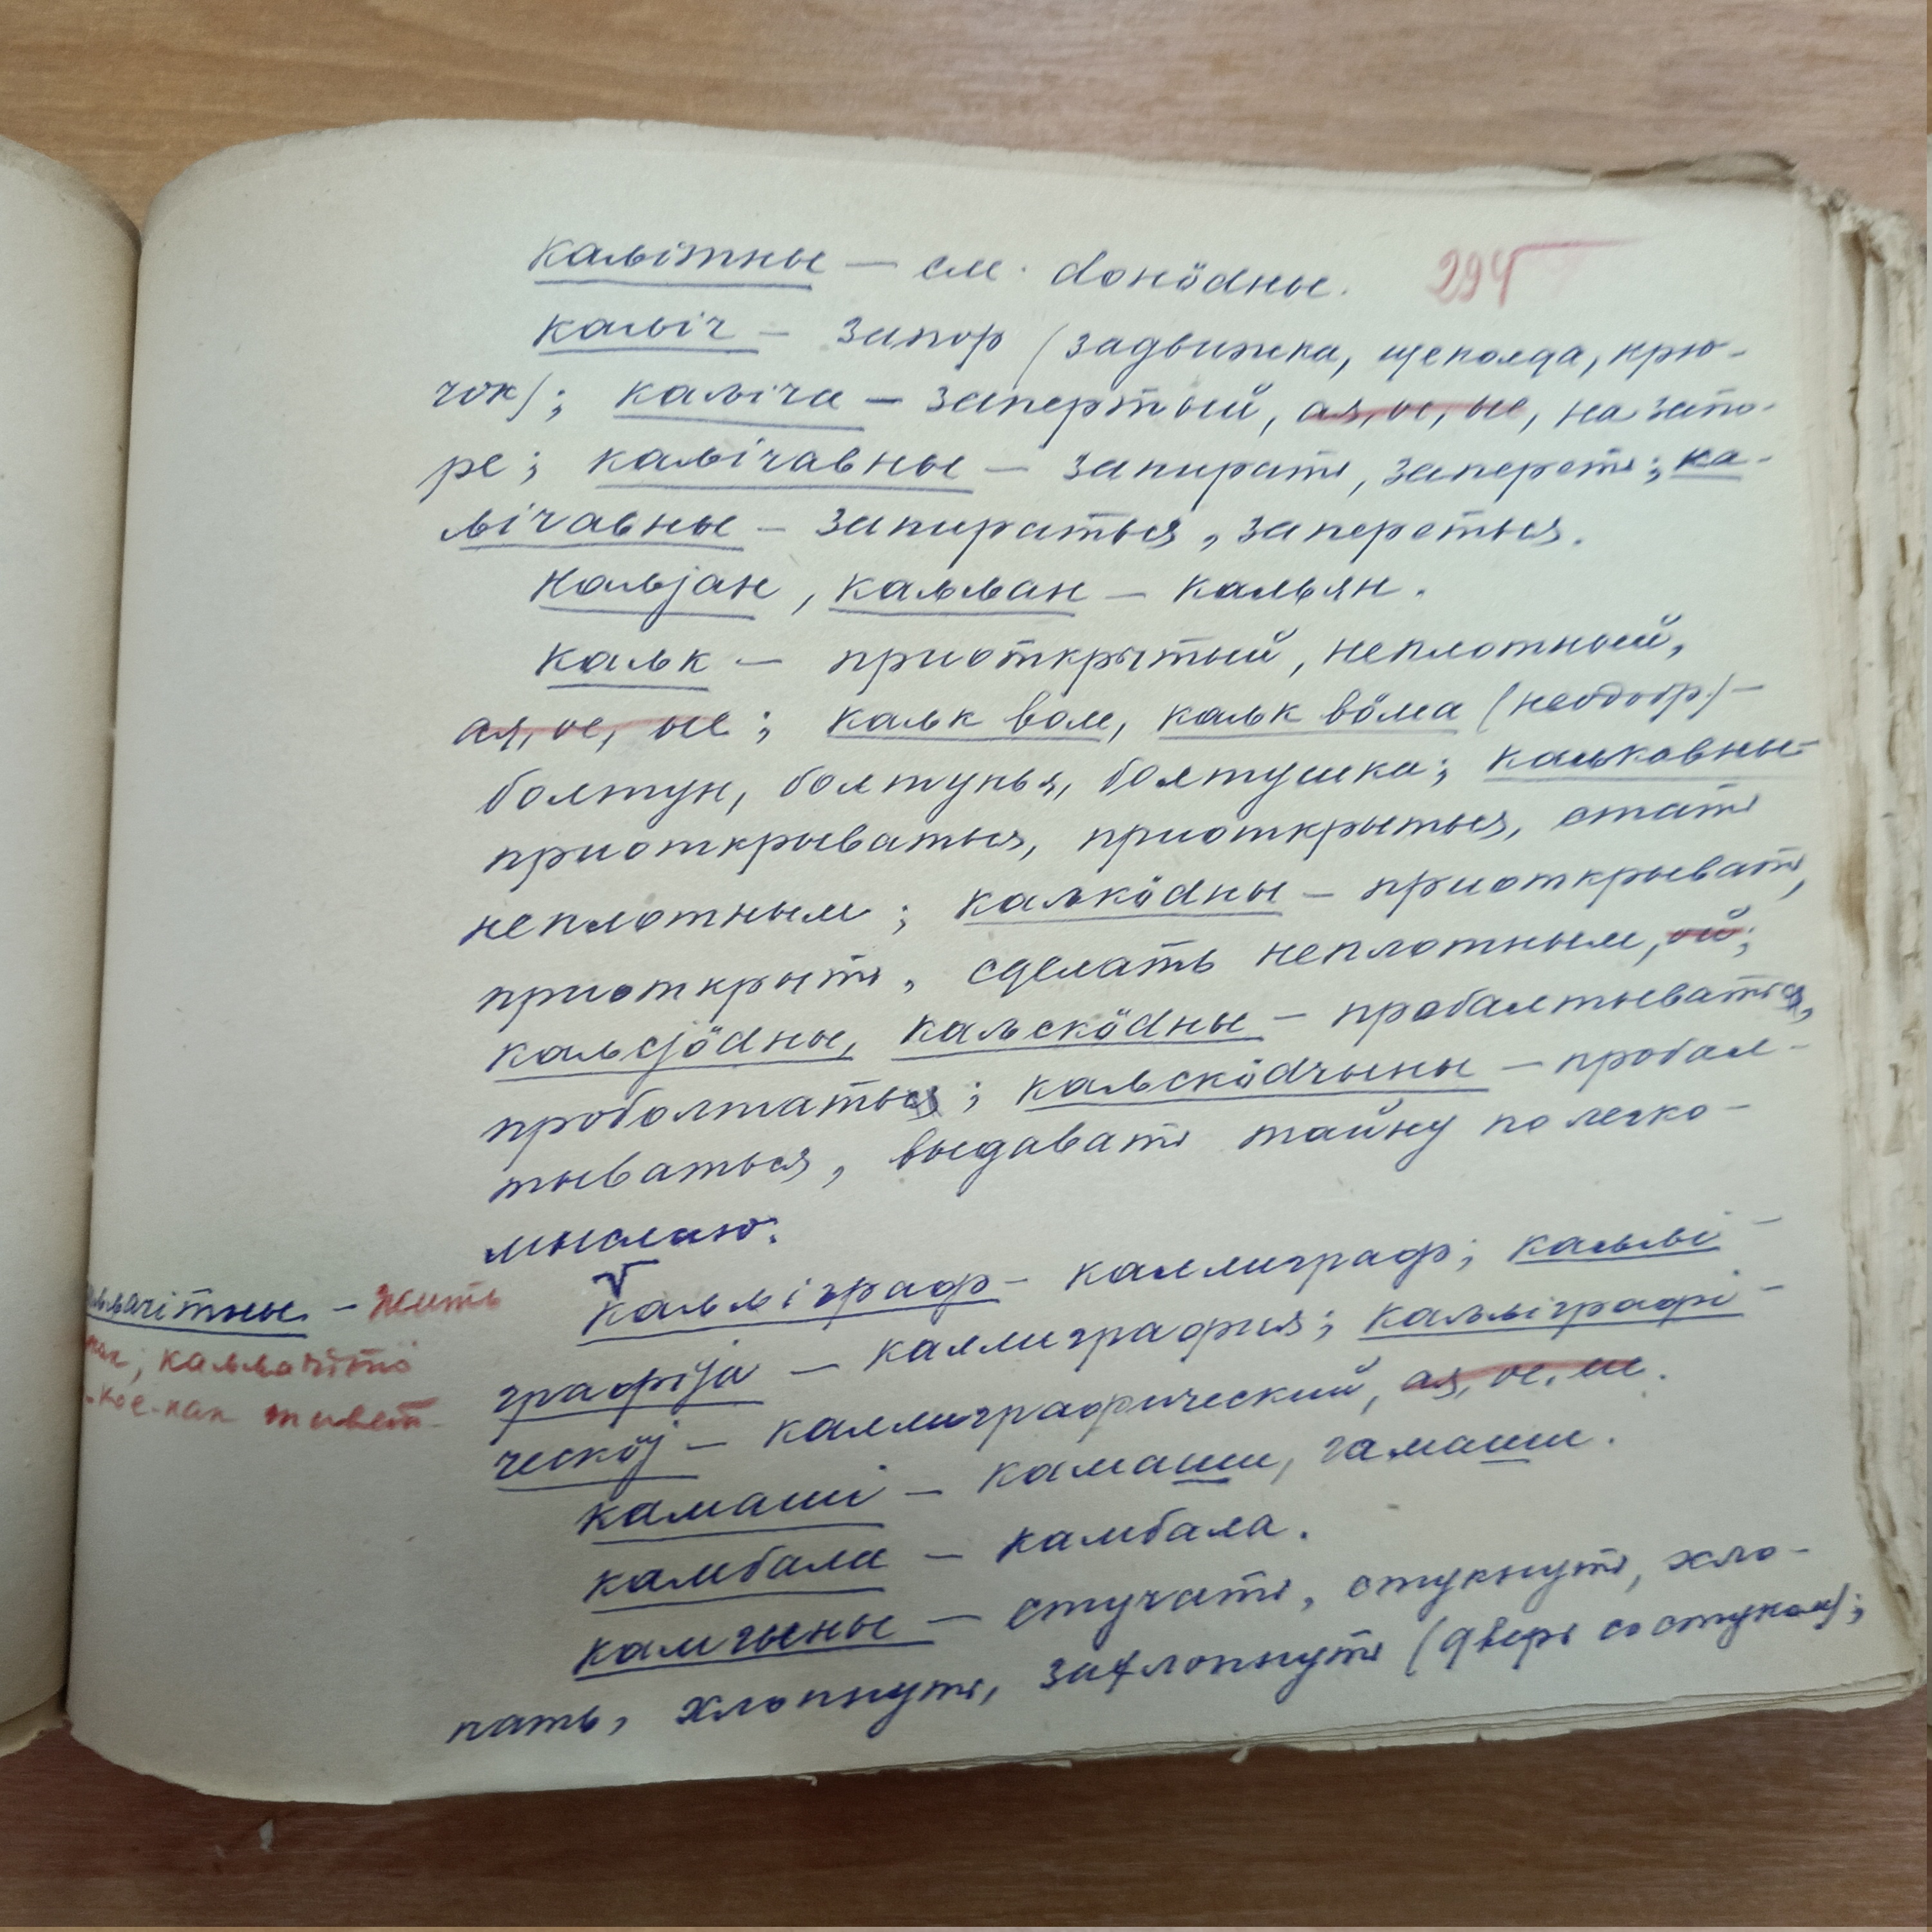 калӧтны — см. dонӧdны. 294
каліч — запор (задвижка, щеколда, крю-
чок); каліча — запертый, ая, ое, ые, на запо-
ре; калічавны — запирать, запереть; ка-
лічавны — запираться, запереться.
Кальјан, каљљан — кальян.
каљк — приоткрытый, неплотный,
ая, ое, ые; каљк вом, каљк вӧма (неодобр.) —
болтун, болтунья, болтушка; каљкавны —
приоткрываться, приоткрыться, стать
неплотным; каљкӧdны — приоткрывать,
приоткрыть, сделать неплотным, ой;
каљсјӧdны, каљскӧdны — пробалтываться,
проболтаться; каљскӧdчыны — пробал-
тываться, выдавать тайну по легко-
мыслию.
каљљіграф — каллиграф; каљљі-
графіја — каллиграфия; каљљіграфі-
ческӧј — каллиграфический, ая, ое, ие.
камаші — камаши, гамаши.
камбала — камбала.
камгыны — стучать, стукнуть, хло-
пать, хлопнуть, захлопнуть (дверь со стуком);
— жить
-кое-как живет